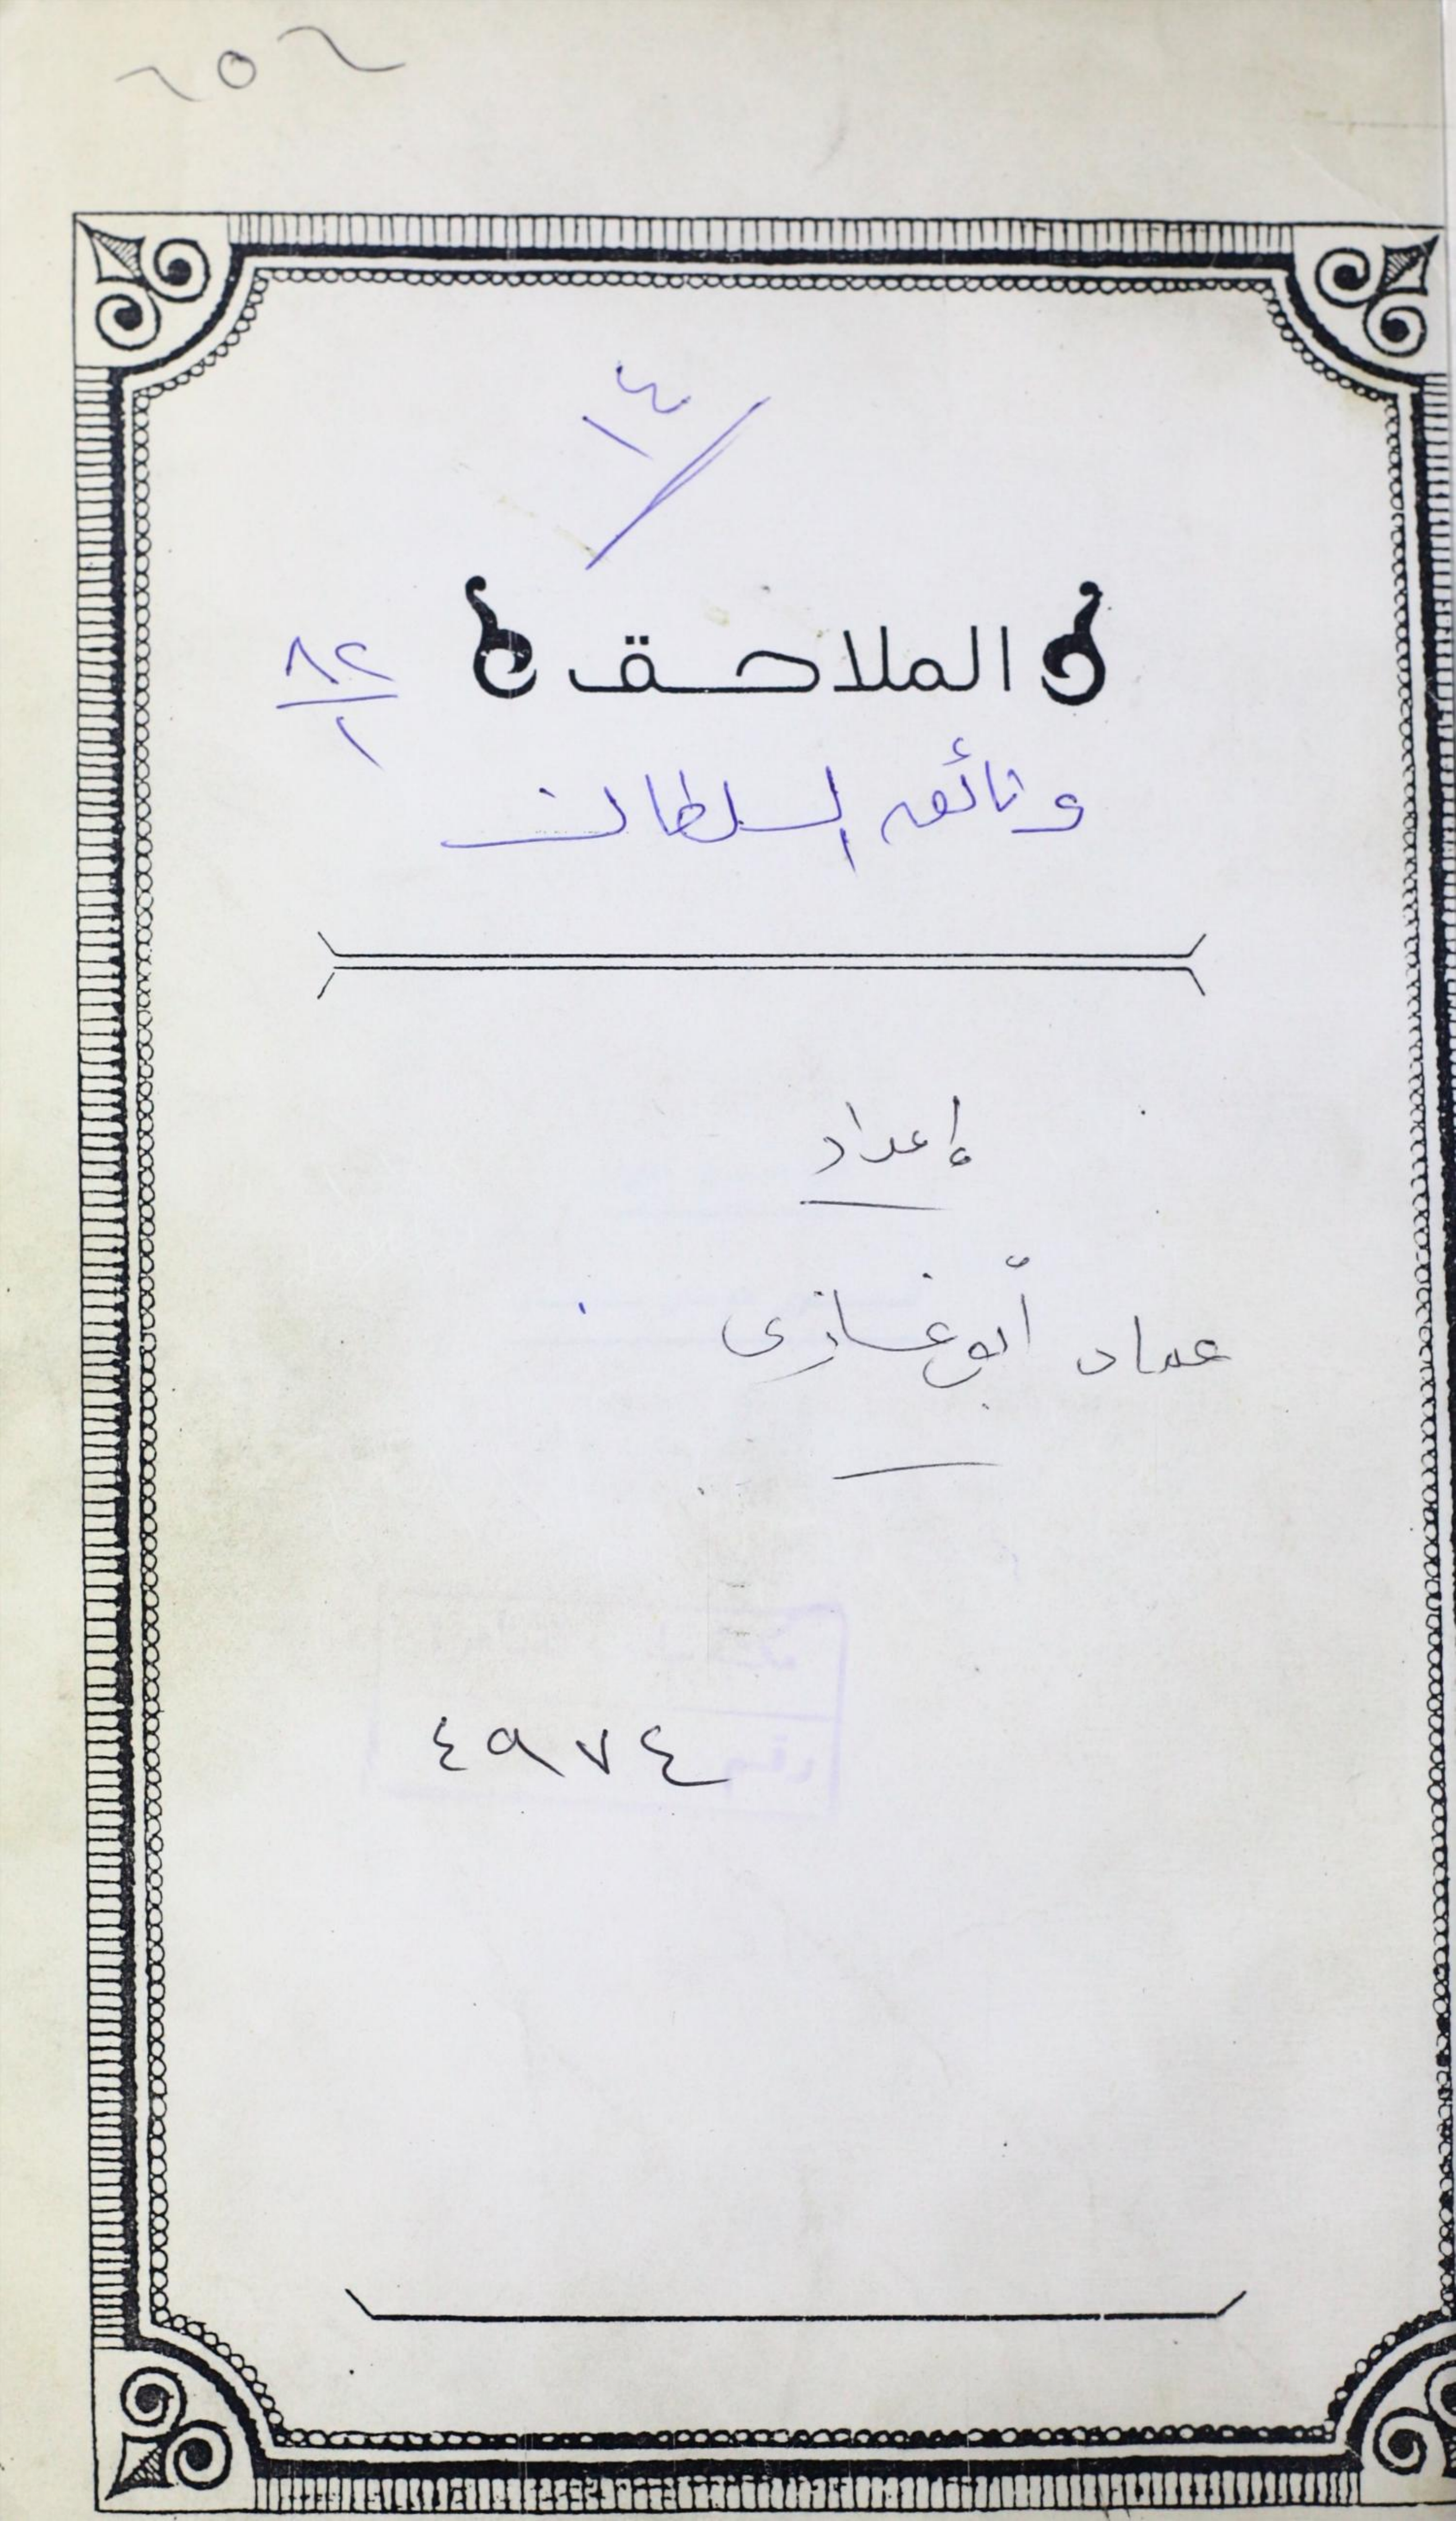 ١٤
الملاحق
٨٢
١
وثائق السلطان
إعداد
عماد أبو غازى
٤٩٧٤